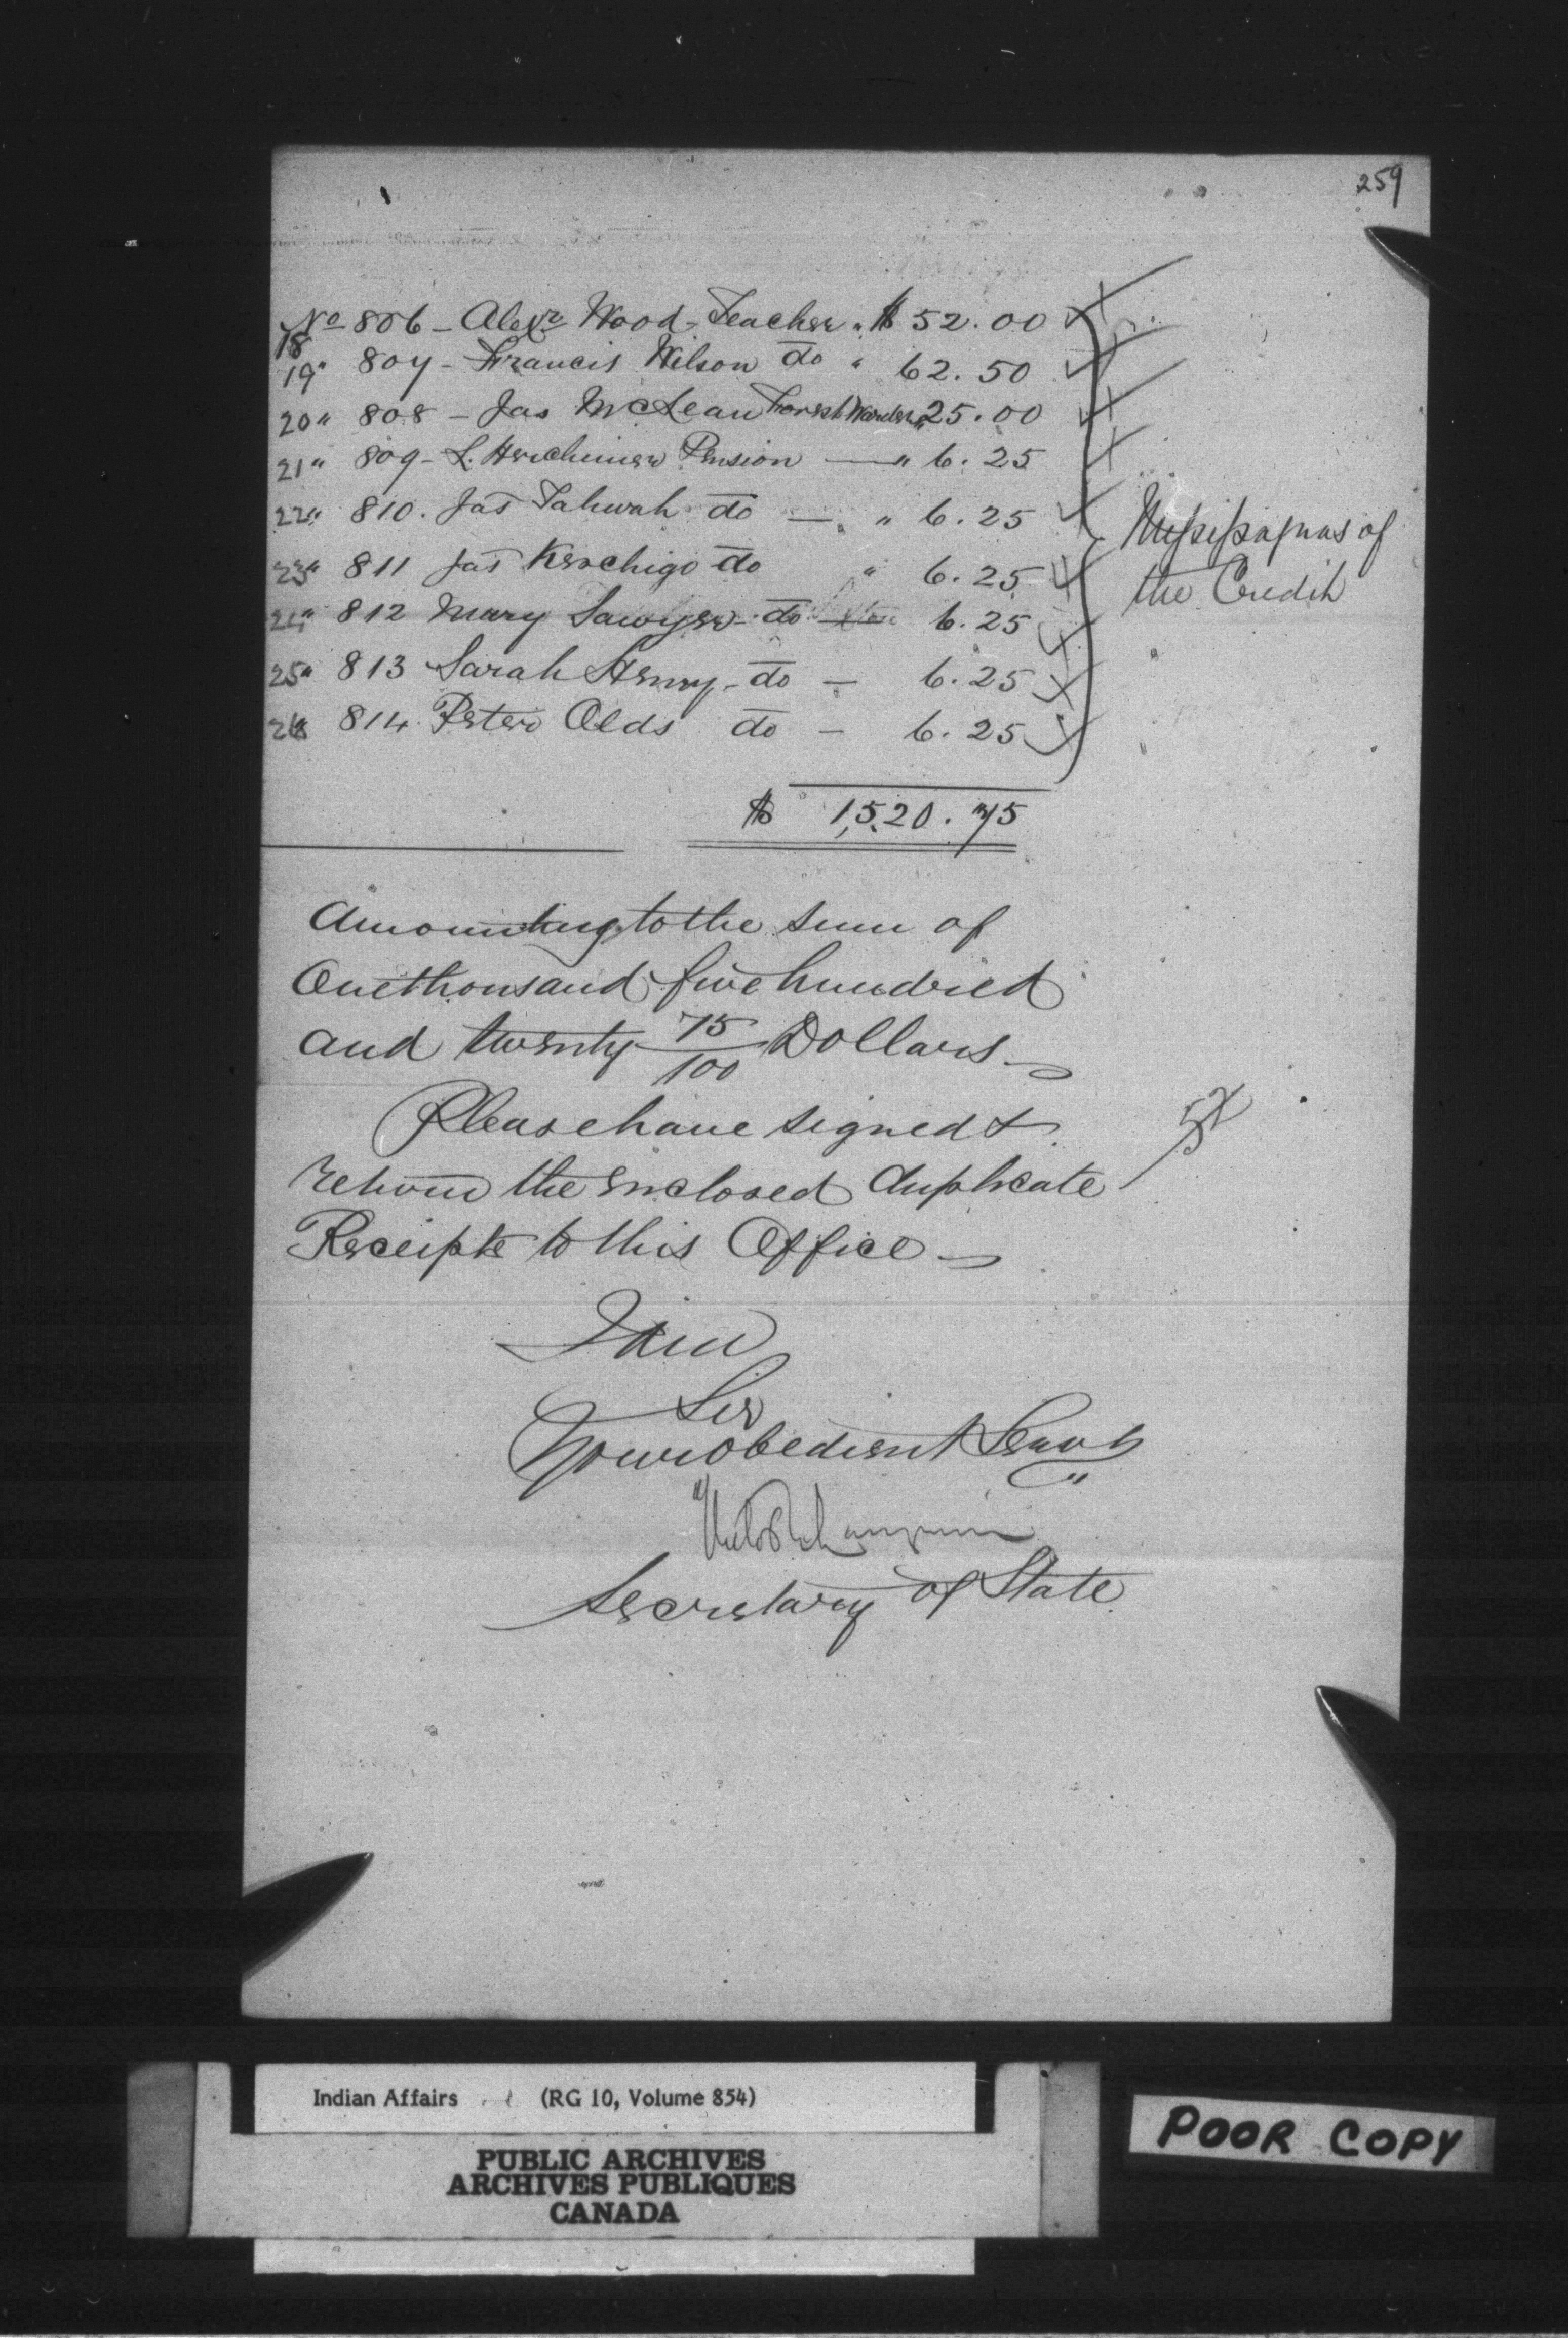 259
18 No 806 - Alexr Wood - Teacher " $ 52.00
19 " 807 - Francis Wilson do " 62.50
20 " 808 - Jas McLean Forest Warden " 25.00
21 " 809 - L. Herchimer Pension — " 6.25
22 " 810. Jas Tahwah do — " 6.25
23 " 811 Jas Keschigo do " 6.25
24 " 812 Mary Sawyer - do — 6.25
25 " 813 Sarah Henry - do — 6.25
26 " 814 Peter Olds do — 6.25
Mississaguas of
the Credit
$ 1,520.75
Amounting to the sum of
One thousand five hundred
and twenty 75/100 Dollars —
Please have signed &
return the enclosed duplicate
Receipts to this Office —
I am
Sir
Your obedient Servt
Secretary of State
Indian Affairs (RG 10, Volume 854)
PUBLIC ARCHIVES
ARCHIVES PUBLIQUES
CANADA
POOR COPY